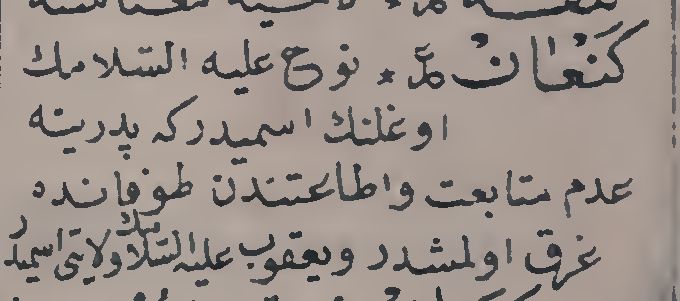 كَنْعَانْ مد ٭ نوح عليه السلامك
اوغلنك اسميدركه پدرينه
عدم متابعت واطاعتندن طوفانده
غرق اولمشدر ويعقوب عليه السلامك ولايتى اسميدر